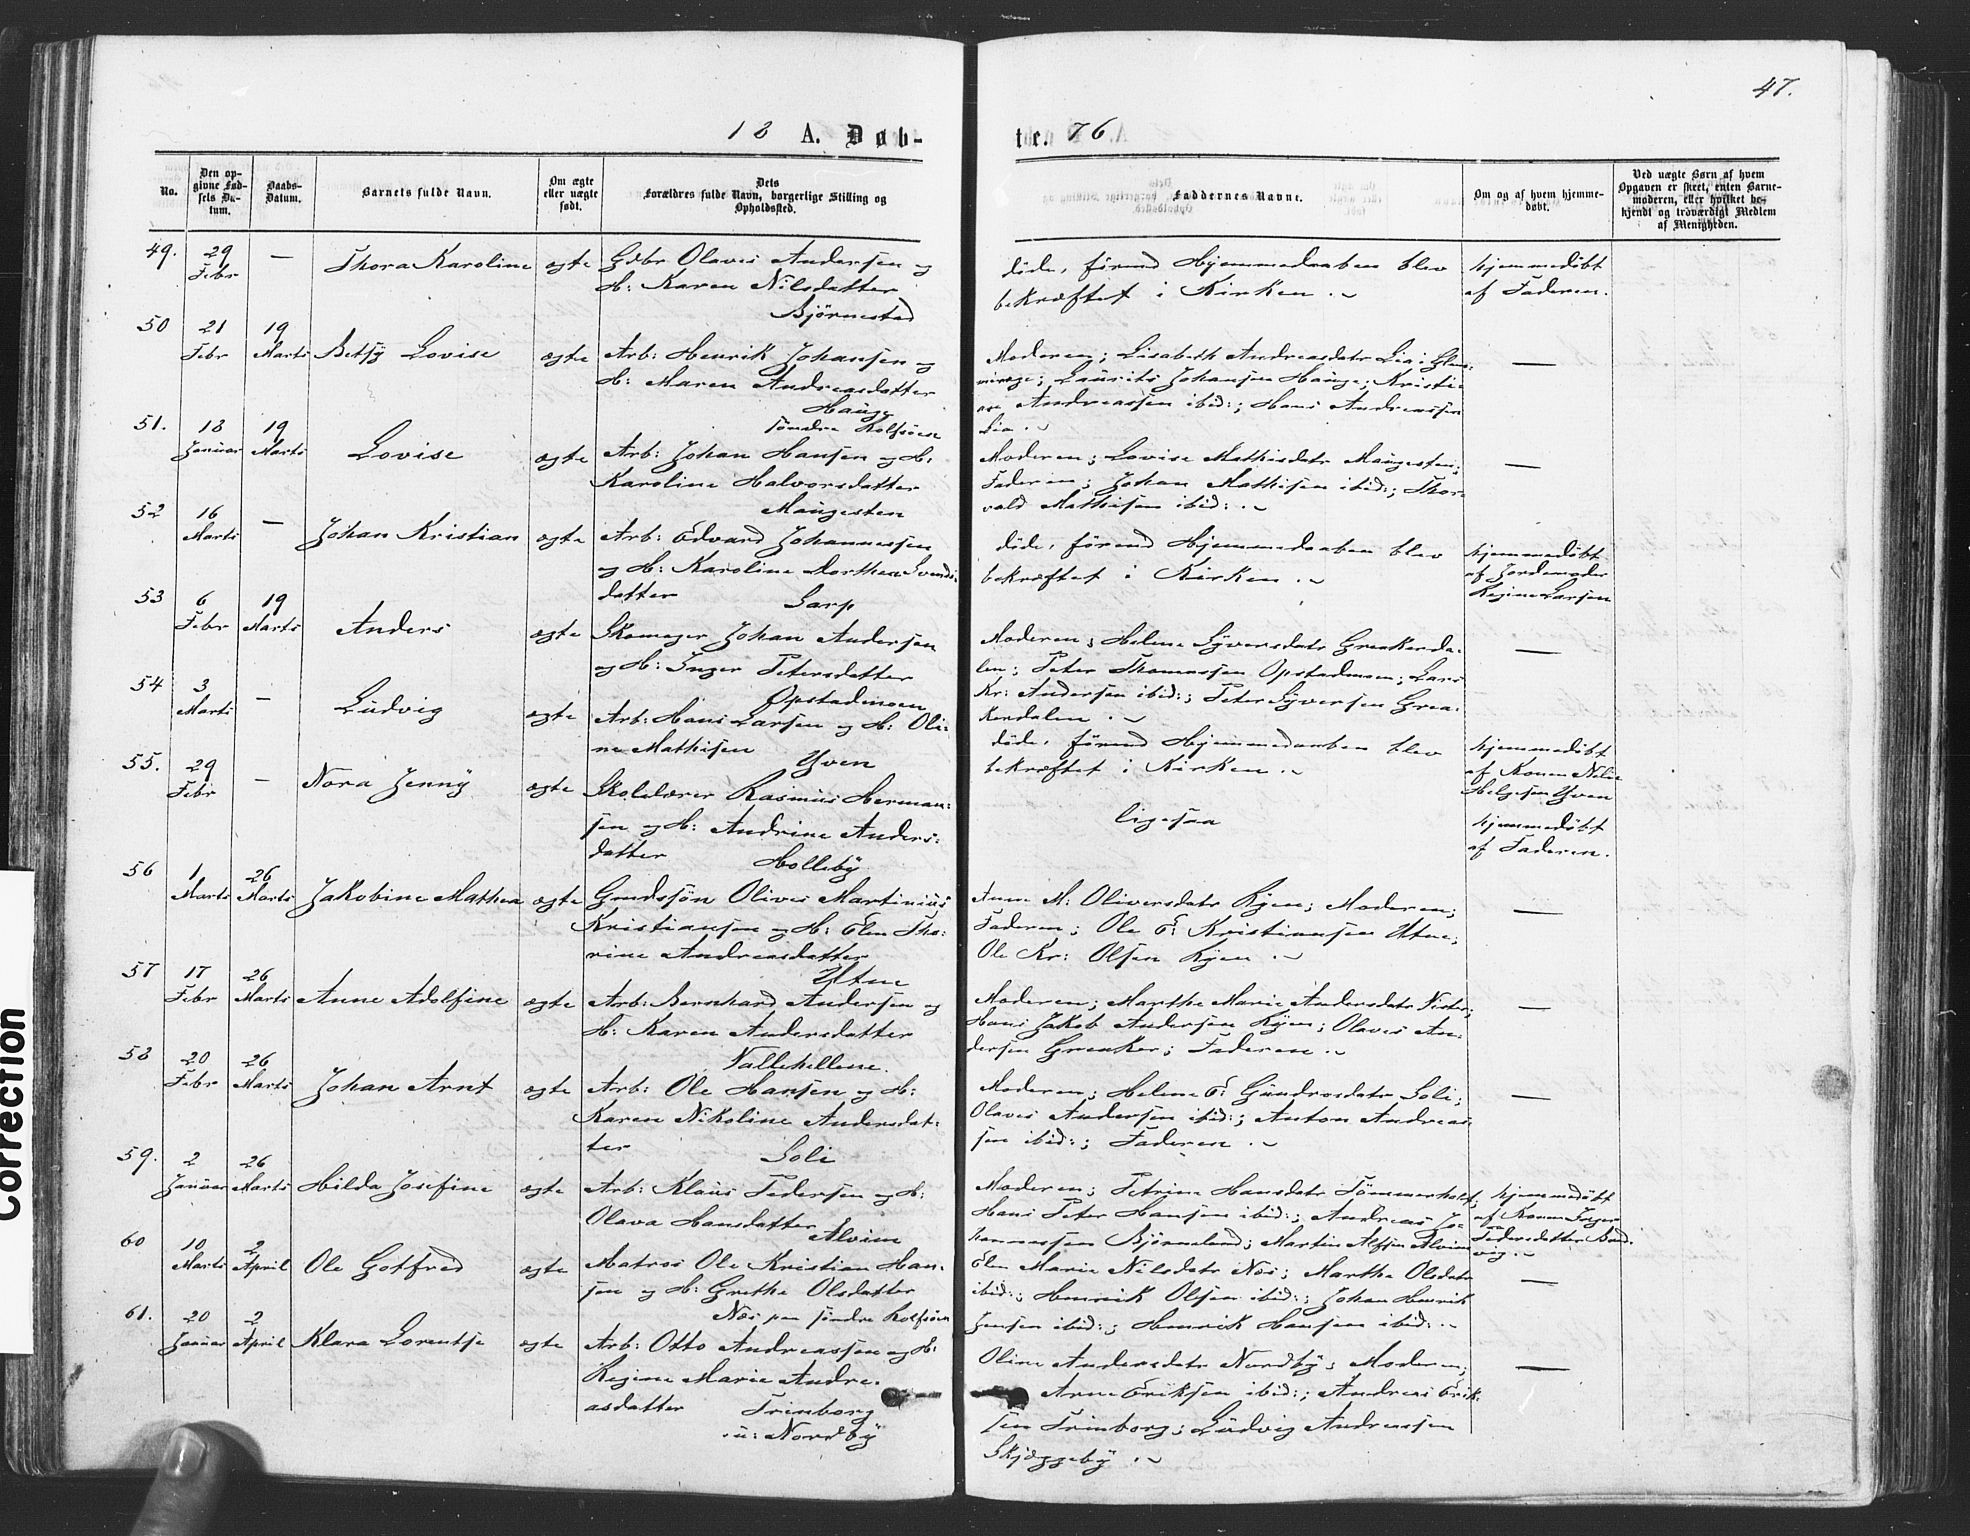 47.
18 A. Døb-
te. 76
No.
Den op-
givne Fød-
sels Da-
tum.
Daabs-
Datum.
Barnets fulde Navn.
Om ægte
eller uægte
født.
Dets
Forældres fulde Navn, borgerlige Stilling og
Opholdssted.
Faddernes Navne.
Om og af hvem hjemme-
døbt.
Ved uægte Børn af hvem
Opgaven er skeet, enten Barne-
moderen, eller hvilket be-
kjendt og troværdigt Medlem
af Menigheden.
49. 29 Febr — Thora Karoline ægte
Gdbr Olaves Andersen og
H: Karen Nilsdatter
Bjørnestad
døde, førend Hjemmedaaben blev
bekræftet i Kirken.
hjemmedøbt
af Faderen.
50 21 Febr 19 Marts Betsy Lovise ægte
Arb: Henrik Johansen og
H: Maren Andreasdatter
Hauge
søndre Rolfsøen
Moderen; Lisabeth Andreasdatr Lia i Glem-
minge; Laurits Johansen Hauge; Kristi-
ane Andreassen ibid:; Hans Andreassen
Lia.
—
51. 18 Januar 19 Marts Lovise ægte
Arb: Johan Hansen og H:
Karoline Halvorsdatter
Maugesten
Moderen; Lovise Mathisdatr Maugesten;
Faderen; Johan Mathisen ibid:; Thor-
vald Mathisen ibid:.
—
52 16 Marts — Johan Kristian ægte
Arb: Edvard Johannessen
og H: Karoline Dorthea Svends-
datter Sarp
døde, førend Hjemmedaaben blev
bekræftet i Kirken.
hjemmedøbt
af Jordemoder
Regine Larsen
53 6 Febr 19 Marts Anders ægte
Skomager Johan Andersen
og H: Inger Petersdatter
Opstadmoen
Moderen; Helene Syversdatr Greakerda-
len; Peter Thomassen Opstadmoen; Lars
Kr: Andersen ibid:; Peter Syversen Grea-
kerdalen.
—
54 3 Marts — Ludvig ægte
Arb: Hans Larsen og H: Oli-
ne Mathisen Yven
døde, førend Hjemmedaaben blev
bekræftet i Kirken.
hjemmedøbt
af Konen
Helgesen Yven
55. 29 Febr — Nora Jenny ægte
Skolelærer Rasmus Herman-
sen og H: Andrine Anders-
datter Holleby
ligesaa
hjemmedøbt
af Faderen.
56 1 Marts 26 Marts Jakobine Mathea ægte
Grudssøn Olives Martinius
Kristiansen og H: Elen Tho-
rine Andreasdatter
Ytne
Anne M: Oliversdatr Kjen; Moderen;
Faderen; Ole E: Kristiansen Ytne;
Ole Kr: Olsen Kjen.
—
57 17 Febr 26 Marts Anne Adolfine ægte
Arb: Bernhard Andersen og
H: Karen Andersdatter
Vallehellene.
Moderen; Marthe Marie Andersdatr Vister;
Hans Jakob Andersen Kjen; Olaves An-
dersen Greaker; Faderen.
—
58 20 Febr 26 Marts Johan Arnt ægte
Arb: Ole Hansen og H:
Karen Nikoline Andersdat-
ter Soli
Moderen; Helene E: Gundrosdatr Soli;
Olaves Andersen ibid:; Anton Andreas-
sen ibid:; Faderen.
—
59. 2 Januar 26 Marts Hilda Josefine ægte
Arb: Klaus Pedersen og H:
Olava Hansdatter Alvim
Moderen; Petrine Hansdatr Tømmerholt;
Hans Peter Hansen ibid:; Andreas Jo-
hannessen Bjørneland; Martin Alfsen Alvim
hjemmedøbt
af Konen Inger
Pedersdatter
60 10 Marts 2 April Ole Gotfred ægte
Matros Ole Kristian Han-
sen og H: Grethe Olsdatter
Næs paa søndre Rolfsøen
Elen Marie Nilsdatr Næs; Marthe Olsdatr
ibid:; Henrik Olsen ibid:; Johan Henrik
Jensen ibid:; Henrik Hansen ibid:.
—
61. 20 Januar 2 April Klara Lorentse ægte
Arb: Otto Andreassen og H:
Regine Marie Andre-
asdatter Trinborg
u: Nordby
Oline Andersdatr Nordby; Moderen;
Arne Eriksen ibid:; Andreas Erik-
sen Trinborg; Ludvig Andreassen
Skjæggeby.
—
Correction